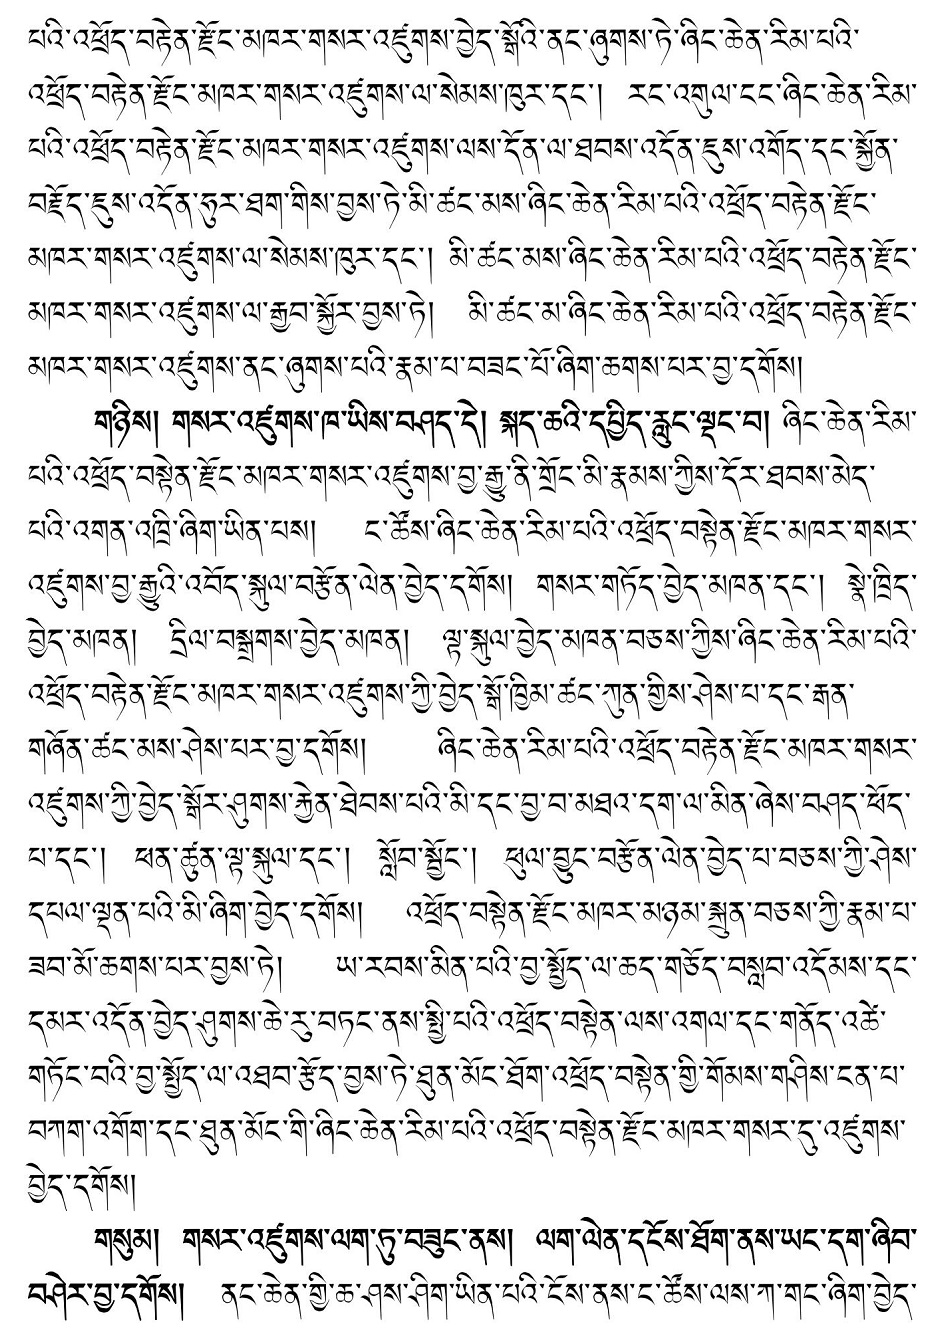 པའི་འཕྲོད་བརྟེན་རྫོང་མཁར་གསར་འཛུགས་བྱེད་སྒོའི་ནང་ཞུགས་ཏེ་ཞིང་ཆེན་རིམ་པའི་
འཕྲོད་བརྟེན་རྫོང་མཁར་གསར་འཛུགས་ལ་སེམས་ཁུར་དང་། རང་འགུལ་ངང་ཞིང་ཆེན་རིམ་
པའི་འཕྲོད་བརྟེན་རྫོང་མཁར་གསར་འཛུགས་ལས་དོན་ལ་ཐབས་འདོན་ཇུས་འགོད་དང་སྐྱོན་
བརྗོད་ཇུས་འདོན་ཧུར་ཐག་གིས་བྱས་ཏེ་མི་ཚང་མས་ཞིང་ཆེན་རིམ་པའི་འཕྲོད་བརྟེན་རྫོང་
མཁར་གསར་འཛུགས་ལ་སེམས་ཁུར་དང་། མི་ཚང་མས་ཞིང་ཆེན་རིམ་པའི་འཕྲོད་བརྟེན་རྫོང་
མཁར་གསར་འཛུགས་ལ་རྒྱབ་སྐྱོར་བྱས་ཏེ། མི་ཚང་མ་ཞིང་ཆེན་རིམ་པའི་འཕྲོད་བརྟེན་རྫོང་
མཁར་གསར་འཛུགས་ནང་ཞུགས་པའི་རྣམ་པ་བཟང་པོ་ཞིག་ཆགས་པར་བྱ་དགོས།
གཉིས། གསར་འཛུགས་ཁ་ཡིས་བཤད་དེ། སྐད་ཆའི་དབྱིད་རླུང་ལྡང་བ། ཞིང་ཆེན་རིམ་
པའི་འཕྲོད་བསྟེན་རྫོང་མཁར་གསར་འཛུགས་བྱ་རྒྱུ་ནི་གྲོང་མི་རྣམས་ཀྱིས་དོར་ཐབས་མེད་
པའི་འགན་འཁྲི་ཞིག་ཡིན་པས། ང་ཚོས་ཞིང་ཆེན་རིམ་པའི་འཕྲོད་བསྟེན་རྫོང་མཁར་གསར་
འཛུགས་བྱ་རྒྱུའི་འབོད་སྐུལ་བརྩོན་ལེན་བྱེད་དགོས། གསར་གཏོད་བྱེད་མཁན་དང་། སྣེ་ཁྲིད་
བྱེད་མཁན། དྲིལ་བསྒྲགས་བྱེད་མཁན། ལྟ་སྐུལ་བྱེད་མཁན་བཅས་ཀྱིས་ཞིང་ཆེན་རིམ་པའི་
འཕྲོད་བརྟེན་རྫོང་མཁར་གསར་འཛུགས་ཀྱི་བྱེད་སྒོ་ཁྱིམ་ཚང་ཀུན་གྱིས་ཤེས་པ་དང་རྒན་
གཞོན་ཚང་མས་ཤེས་པར་བྱ་དགོས། ཞིང་ཆེན་རིམ་པའི་འཕྲོད་བརྟེན་རྫོང་མཁར་གསར་
འཛུགས་ཀྱི་བྱེད་སྒོར་ཤུགས་རྐྱེན་ཐེབས་པའི་མི་དང་བྱ་བ་མཐའ་དག་ལ་མིན་ཞེས་བཤད་ཕོད་
པ་དང་། ཕན་ཚུན་ལྟ་སྐུལ་དང་། སློབ་སྦྱོང་། ཕུལ་བྱུང་བརྩོན་ལེན་བྱེད་པ་བཅས་ཀྱི་ཤེས་
དཔལ་ལྡན་པའི་མི་ཞིག་བྱེད་དགོས། འཕྲོད་བསྟེན་རྫོང་མཁར་མཉམ་སྐྲུན་བཅས་ཀྱི་རྣམ་པ་
ཟབ་མོ་ཆགས་པར་བྱས་ཏེ། ཡ་རབས་མིན་པའི་བྱ་སྤྱོད་ལ་ཆད་གཅོད་བསླབ་འདོམས་དང་
དམར་འདོན་བྱེད་ཤུགས་ཆེ་རུ་བཏང་ནས་སྤྱི་པའི་འཕྲོད་བསྟེན་ལས་འགལ་དང་གནོད་འཚེ་
གཏོང་བའི་བྱ་སྤྱོད་ལ་འཐབ་རྩོད་བྱས་ཏེ་ཐུན་མོང་ཐོག་འཕྲོད་བསྟེན་གྱི་གོམས་གཤིས་ངན་པ་
བཀག་འགོག་དང་ཐུན་མོང་གི་ཞིང་ཆེན་རིམ་པའི་འཕྲོད་བསྟེན་རྫོང་མཁར་གསར་དུ་འཛུགས་
བྱེད་དགོས།
གསུམ། གསར་འཛུགས་ལག་ཏུ་བཟུང་ནས། ལག་ལེན་དངོས་ཐོག་ནས་ཡང་དག་ཞིབ་
བཤེར་བྱ་དགོས། ནང་ཆེན་གྱི་ཆ་ཤས་ཤིག་ཡིན་པའི་ངོས་ནས་ང་ཚོས་ལས་ཀ་གང་ཞིག་བྱེད་